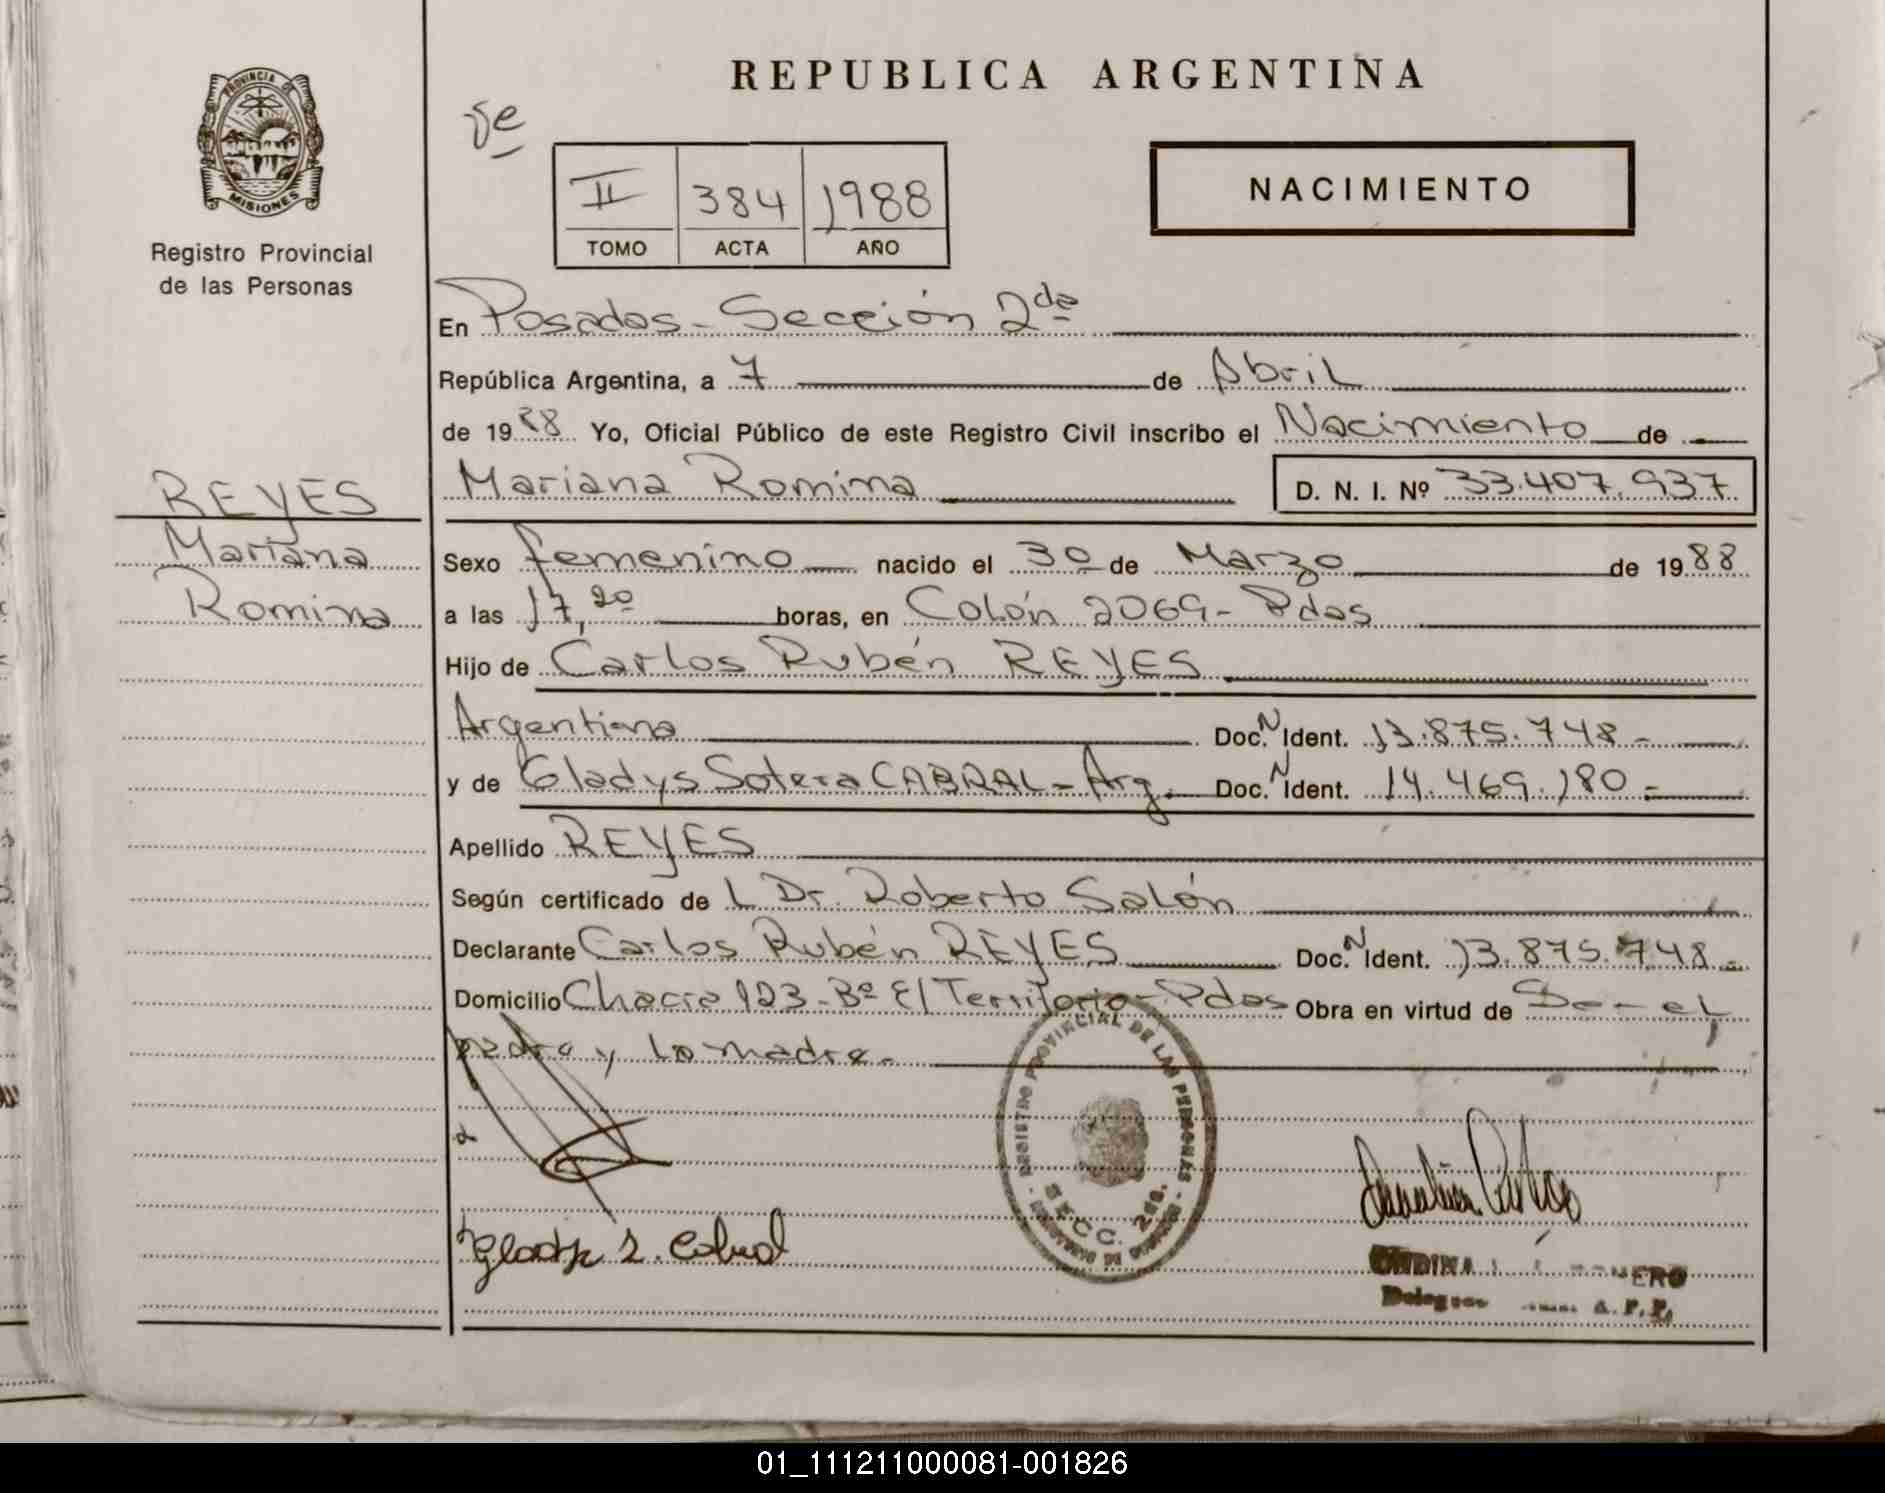 PROVINCIA DE
MISIONES
Registro Provincial
de las Personas
REPUBLICA ARGENTINA
II 384 1988
TOMO ACTA AÑO
NACIMIENTO
En Posadas - Sección 2da
República Argentina, a 7 de Abril
de 1988 Yo, Oficial Público de este Registro Civil inscribo el Nacimiento de
REYES
Mariana
Romina
Mariana Romina D. N. I. Nº 33.407.937
Sexo femenino nacido el 30 de Marzo de 1988
a las 17,20 horas, en Colón 2069 - Pdas
Hijo de Carlos Rubén REYES
Argentina Doc. N Ident. 13.875.748 -
y de Gladys Sotera CABRAL - Arg. Doc. N Ident. 14.469.180 -
Apellido REYES
Según certificado de L Dr. Roberto Salón
Declarante Carlos Rubén REYES Doc. N Ident. 13.875.748 -
Domicilio Chacra 123 - Bº El Territorio - Pdas Obra en virtud de Se - el
padre y la madre -
REGISTRO PROVINCIAL DE LAS PERSONAS
SECC. 2da.
01_111211000081-001826